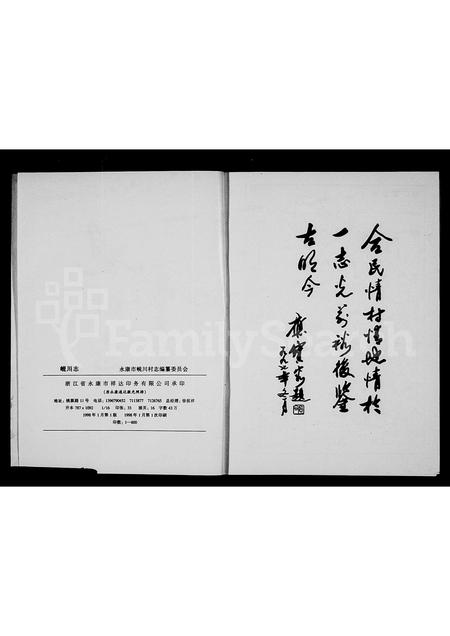 岘川志 永康市岘川村志编纂委员会
浙江省永康市祥达印务有限公司承印
(原永康通达激光照排)
开本 787×1092 1/16 印张:35 插页:16 字数 43 万
1998 年 1 月第 1 版 1998 年 1 月第 1 次印刷
印数:1—600
合民情村情地情於
一志光前裕後鉴
古明今
FamilySearch